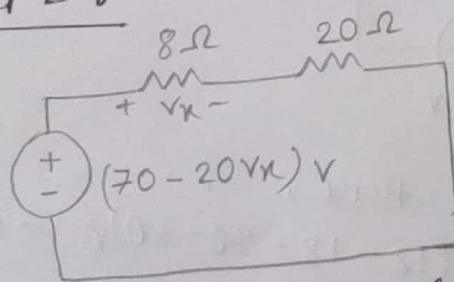 8Ω 20Ω
+ Vx −
+
− (70 − 20Vx) V